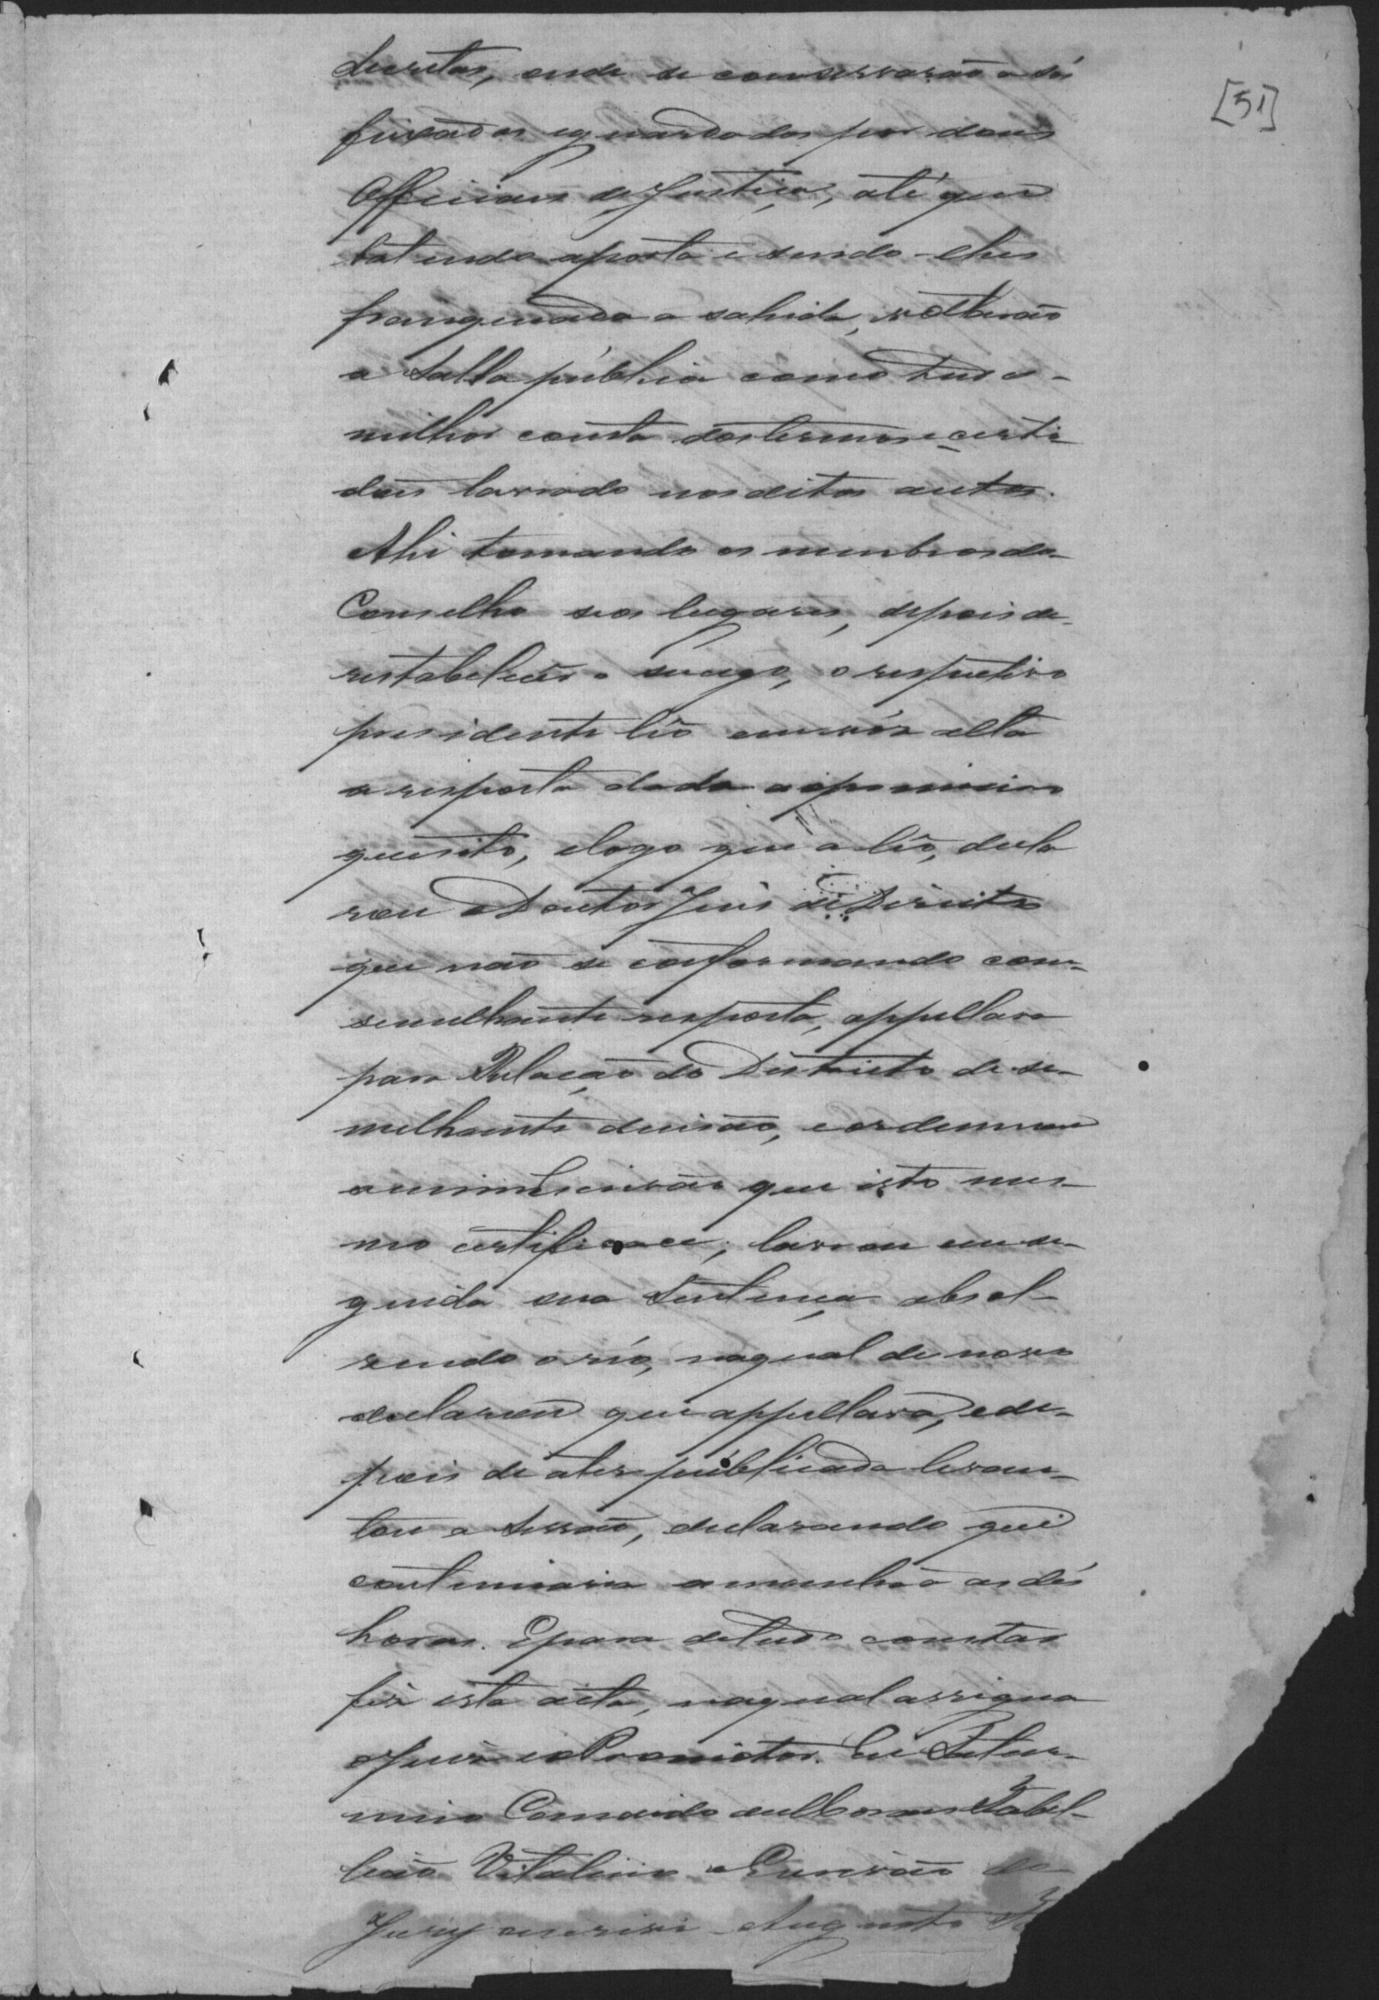 [51]
secretas, onde se conservarão a sós
fixados e guardados por dous
Officiaes de Justiça, até que
batendo a porta e sendo-lhes
franqueada a sahida, voltarão
a Salla publica como tudo
milhor consta dos termos e certi
dões lavrado nos ditos autos.
Ahi tomando os membros do
Conselho seos lugares, depois de
restabelecido o socego, o respectivo
presidente lêo em vóz alta
a resposta dada ao primeiro
quesito, e logo que a lêo, decla
rou o Doutor Juis de Direito
que não se conformando com
semelhante resposta, appellava
para Relação do Districto de se-
melhante decisão, e ordennou
a mim Escrivão que isto mes-
mo certificace; lavrou em se-
guida sua Sentença absol-
vendo o réo, na qual de novo
declarou que appellava, e de-
pois de a ter publicada levan-
tou a Sessão, declarando que
continuava amanhã as dés
horas. E para de tudo constar
fiz esta acta, na qual assigna
o Juiz e o Promotor. Eu
Tabel-
lião Vitalicio e Escrivão do
Jury escrivi Augusto